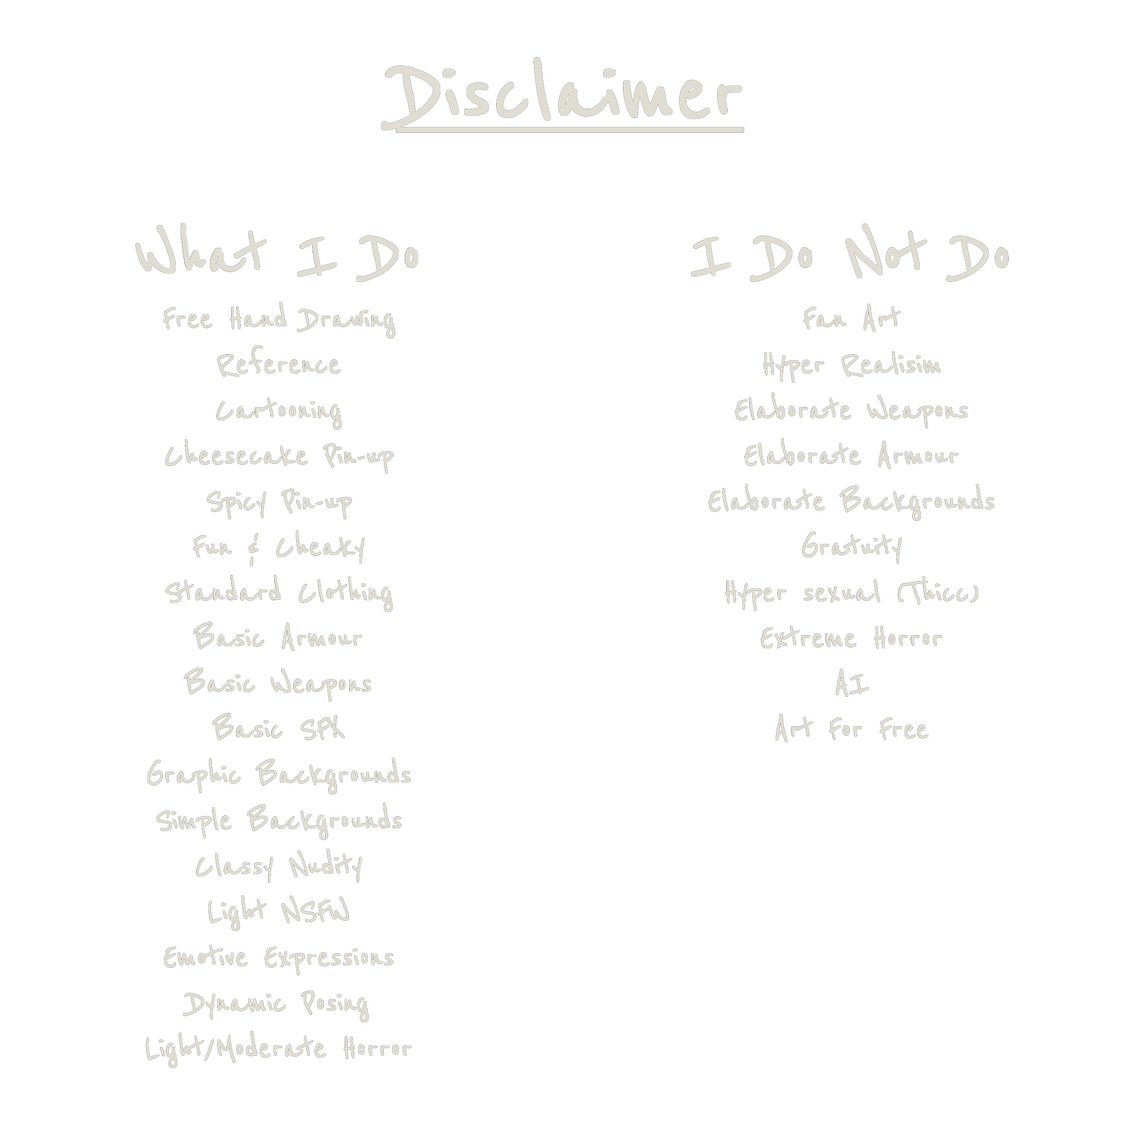 Disclaimer
What I Do
Free Hand Drawing
Reference
Cartooning
Cheesecake Pin-up
Spicy Pin-up
Fun & Cheaky
Standard Clothing
Basic Armour
Basic Weapons
Basic SFX
Graphic Backgrounds
Simple Backgrounds
Classy Nudity
Light NSFW
Emotive Expressions
Dynamic Posing
Light/Moderate Horror
I Do Not Do
Fan Art
Hyper Realisim
Elaborate Weapons
Elaborate Armour
Elaborate Backgrounds
Gratuity
Hyper sexual (Thicc)
Extreme Horror
AI
Art For Free